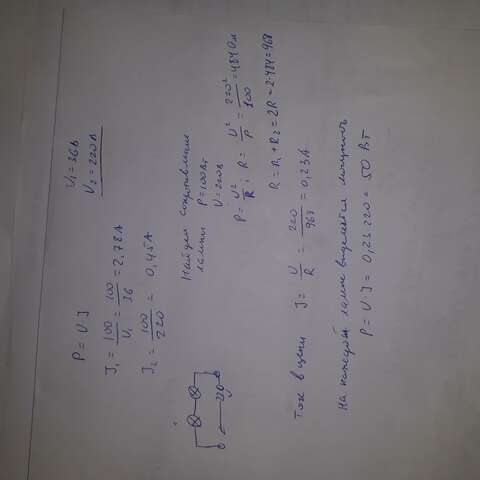 U₁=36В
U₂=220В
P=UJ
J₁=100/U₁=100/36=2,78А
J₂=100/220=0,45А
Найдем сопротивление
лампы P=100Вт
U=220В
P=U²/R; R=U²/P=220²/100=484Ом
R=R₁+R₂=2R=2·484=968
220
Ток в цепи J=U/R=220/968=0,23А
На каждой лампе выделяется мощность
P=U·J=0,23·220=50Вт